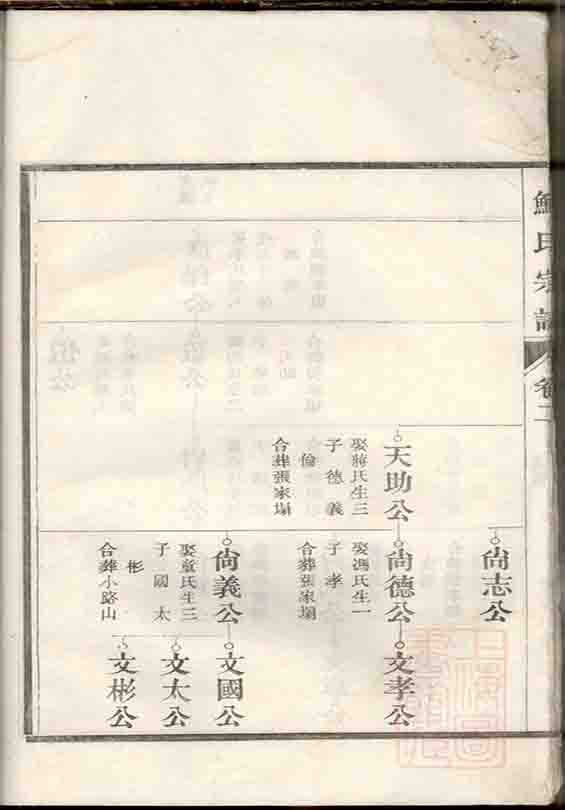 鮑氏宗譜
卷二
尙志公
天助公
娶蔣氏生三
子德義
倫
合葬張家塌
尙德公
娶馮氏生一
子孝
合葬張家塌
文孝公
尙義公
娶童氏生三
子國太
彬
合葬小路山
文國公
文太公
文彬公
上海圖